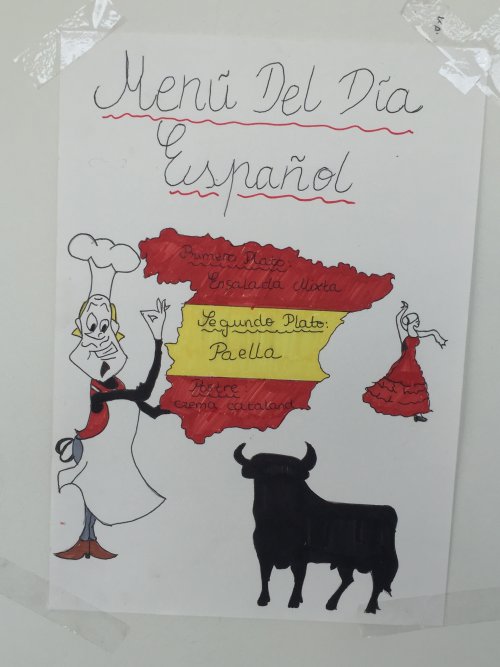 Menú Del Día
Español
Primero Plato:
Ensalada Mixta
Segundo Plato:
Paella
Postre:
crema catalana